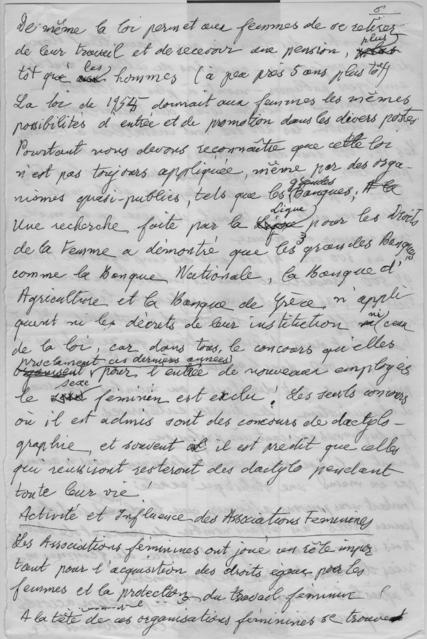 6
De même la loi permet aux femmes de se retirer
de leur travail et de recevoir une pension, plus
tôt que les hommes (à peu près 5 ans plus tôt)
La loi de 1955 donnait aux femmes les mêmes
possibilités d'entrée et de promotion dans les divers postes
Pourtant nous devons reconnaître que cette loi
n'est pas toujours appliquée, même par des orga-
nismes quasi-publics, tels que les grandes Banques,
Une recherche faite par la Ligue pour les Droits
de la Femme a démontré que les 3 grandes Banques
comme la Banque Nationale, la Banque d'
Agriculture et la Banque de Grèce, n'appli
quent ni les décrets de leur institution ni ceux
de la loi, car dans tous les concours qu'elles
proclament ces derniers années
pour l'entrée de nouveaux employés
le sexe féminin est exclu! Les seuls concours
où il est admis sont des concours de dactylo-
graphie, et souvent il est prédit que celles
qui réussiront resteront des dactylo pendant
toute leur vie!
Activité et Influence des Associations Féminines
Les Associations féminines ont joué un rôle impor
tant pour l'acquisition des droits égaux par les
femmes et la protection du travail féminin!
A la tête de ces organisations féminines se trouvent